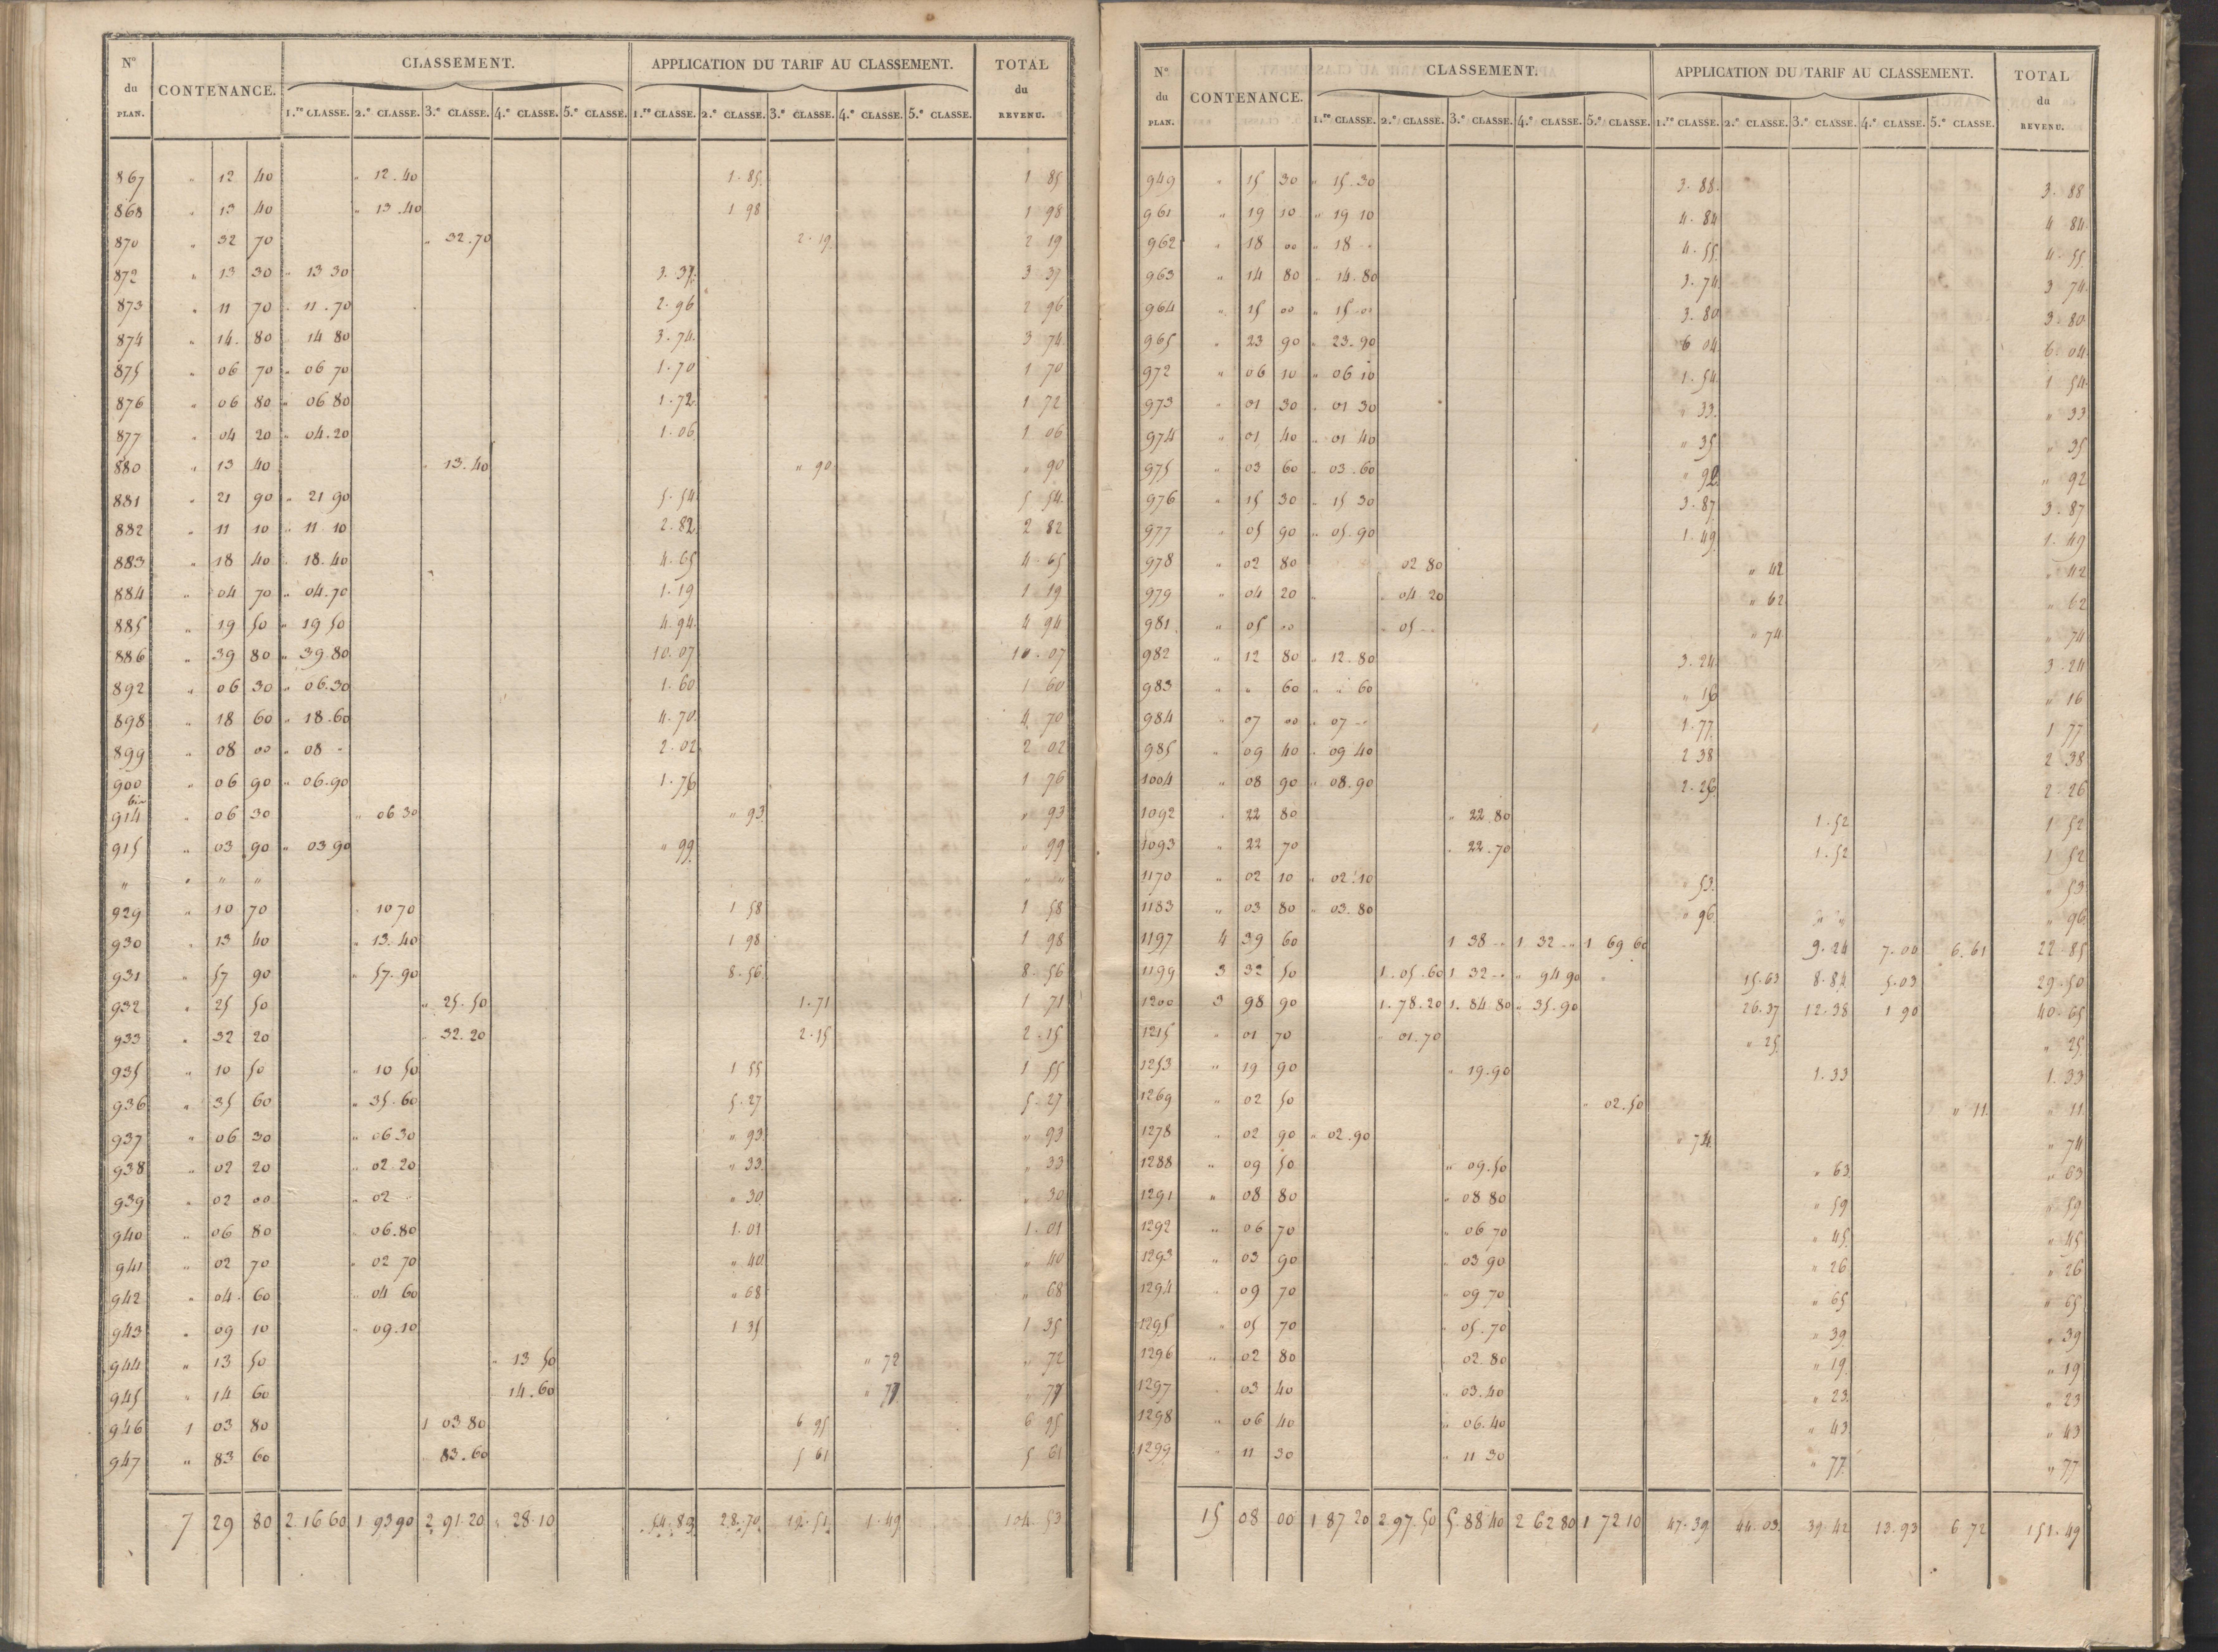 N° du PLAN. CONTENANCE. CLASSEMENT. APPLICATION DU TARIF AU CLASSEMENT. TOTAL du REVENU.
1.re CLASSE. 2.e CLASSE. 3.e CLASSE. 4.e CLASSE. 5.e CLASSE. 1.re CLASSE. 2.e CLASSE. 3.e CLASSE. 4.e CLASSE. 5.e CLASSE.
867 " 12 40 " 12.40 1.85 1 85
868 " 13 40 " 13.40 1 98 1 98
870 " 32 70 " 32.70 2.19 2 19
872 " 13 30 " 13 30 3.37 3 37
873 " 11 70 " 11.70 2.96 2 96
874 " 14. 80 14 80 3.74 3 74
875 " 06 70 " 06 70 1.70 1 70
876 " 06 80 " 06 80 1.72 1 72
877 " 04 20 " 04.20 1.06 1 06
880 " 13 40 " 13.40 " 90 " 90
881 " 21 90 " 21 90 5.54 5 54
882 " 11 10 " 11 10 2.82 2 82
883 " 18 40 " 18.40 4.65 4.65
884 " 04 70 " 04.70 1.19 1 19
885 " 19 50 " 19 50 4.94 4 94
886 " 39 80 " 39.80 10.07 10.07
892 " 06 30 " 06.30 1.60 1 60
898 " 18 60 " 18.60 4.70 4 70
899 " 08 00 " 08 " 2.02 2 02
900 " 06 90 " 06.90 1.76 1 76
914 bis " 06 30 " 06 30 " 93 " 93
915 " 03 90 " 03 90 " 99 " 99
" " " " " "
929 " 10 70 " 10 70 1 58 1 58
930 " 13 40 " 13.40 1 98 1 98
931 " 57 90 " 57.90 8.56 8.56
932 " 25 50 " 25.50 1.71 1 71
933 " 32 20 " 32.20 2.15 2.15
935 " 10 50 " 10 50 1 55 1 55
936 " 35 60 " 35.60 5.27 5.27
937 " 06 30 " 06 30 " 93 " 93
938 " 02 20 " 02.20 " 33 " 33
939 " 02 00 " 02 " " 30 " 30
940 " 06 80 " 06.80 1.01 1.01
941 " 02 70 " 02 70 " 40 " 40
942 " 04 60 " 04 60 " 68 " 68
943 " 09 10 " 09.10 1 35 1 35
944 " 13 50 " 13 50 " 72 " 72
945 " 14 60 14.60 " 77 " 77
946 1 03 80 1 03 80 6 95 6 95
947 " 83 60 " 83.60 5 61 5 61
7 29 80 2 16 60 1 93 90 2 91.20 " 28.10 54.83 28.70 19.51 1.49 104.53
N° du PLAN. CONTENANCE. CLASSEMENT. APPLICATION DU TARIF AU CLASSEMENT. TOTAL du REVENU.
1.re CLASSE. 2.e CLASSE. 3.e CLASSE. 4.e CLASSE. 5.e CLASSE. 1.re CLASSE. 2.e CLASSE. 3.e CLASSE. 4.e CLASSE. 5.e CLASSE.
949 " 15 30 " 15.30 3.88 3.88
961 " 19 10 " 19 10 4.84 4 84
962 " 18 00 " 18 " 4.55 4.55
963 " 14 80 " 14.80 3.74 3 74
964 " 15 00 " 15 00 3.80 3.80
965 " 23 90 " 23.90 6 04 6.04
972 " 06 10 " 06 10 1.54 1 54
973 " 01 30 " 01 30 " 33 " 33
974 " 01 40 " 01 40 " 35 " 35
975 " 03 60 " 03.60 " 92 " 92
976 " 15 30 " 15 30 3.87 3.87
977 " 05 90 " 05.90 1.49 1.49
978 " 02 80 02 80 " 42 " 42
979 " 04 20 " " 04 20 " 62 " 62
981 " 05 00 " 05 " " 74 " 74
982 " 12 80 " 12.80 3.24 3.24
983 " " 60 " " 60 " 16 " 16
984 " 07 00 " 07 " 1.77 1 77
985 " 09 40 " 09 40 2 38 2 38
1004 " 08 90 " 08.90 2.26 2.26
1092 " 22 80 " 22.80 1.52 1 52
1093 " 22 70 " 22.70 1.52 1 52
1170 " 02 10 " 02.10 " 53 " 53
1183 " 03 80 " 03.80 " 96 " " " 96
1197 4 39 60 1 38 " 1 32 " 1 69 60 9.24 7.00 6.61 22 85
1199 3 32 50 1.05.60 1 32 " " 94 90 15.63 8.84 5.03 29.50
1200 3 98 90 1.78.20 1.84 80 " 35.90 26.37 12.38 1 90 40.65
1215 " 01 70 " 01.70 " 25 " 25
1253 " 19 90 " 19.90 1.33 1.33
1269 " 02 50 " 02.50 " 11 " 11
1278 " 02 90 " 02.90 " 74 " 74
1288 " 09 50 " 09.50 " 63 " 63
1291 " 08 80 " 08 80 " 59 " 59
1292 " 06 70 " 06 70 " 45 " 45
1293 " 03 90 " 03 90 " 26 " 26
1294 " 09 70 09 70 " 65 " 65
1295 " 05 70 " 05.70 " 39 " 39
1296 " 02 80 02.80 " 19 " 19
1297 " 03 40 " 03.40 " 23 " 23
1298 " 06 40 " 06.40 " 43 " 43
1299 " 11 30 " 11 30 " 77 " 77
15 08 00 1 87 20 2 97.50 5.88 40 2 62 80 1 72 10 47.39 44.03 39.42 13.93 6 72 151.49